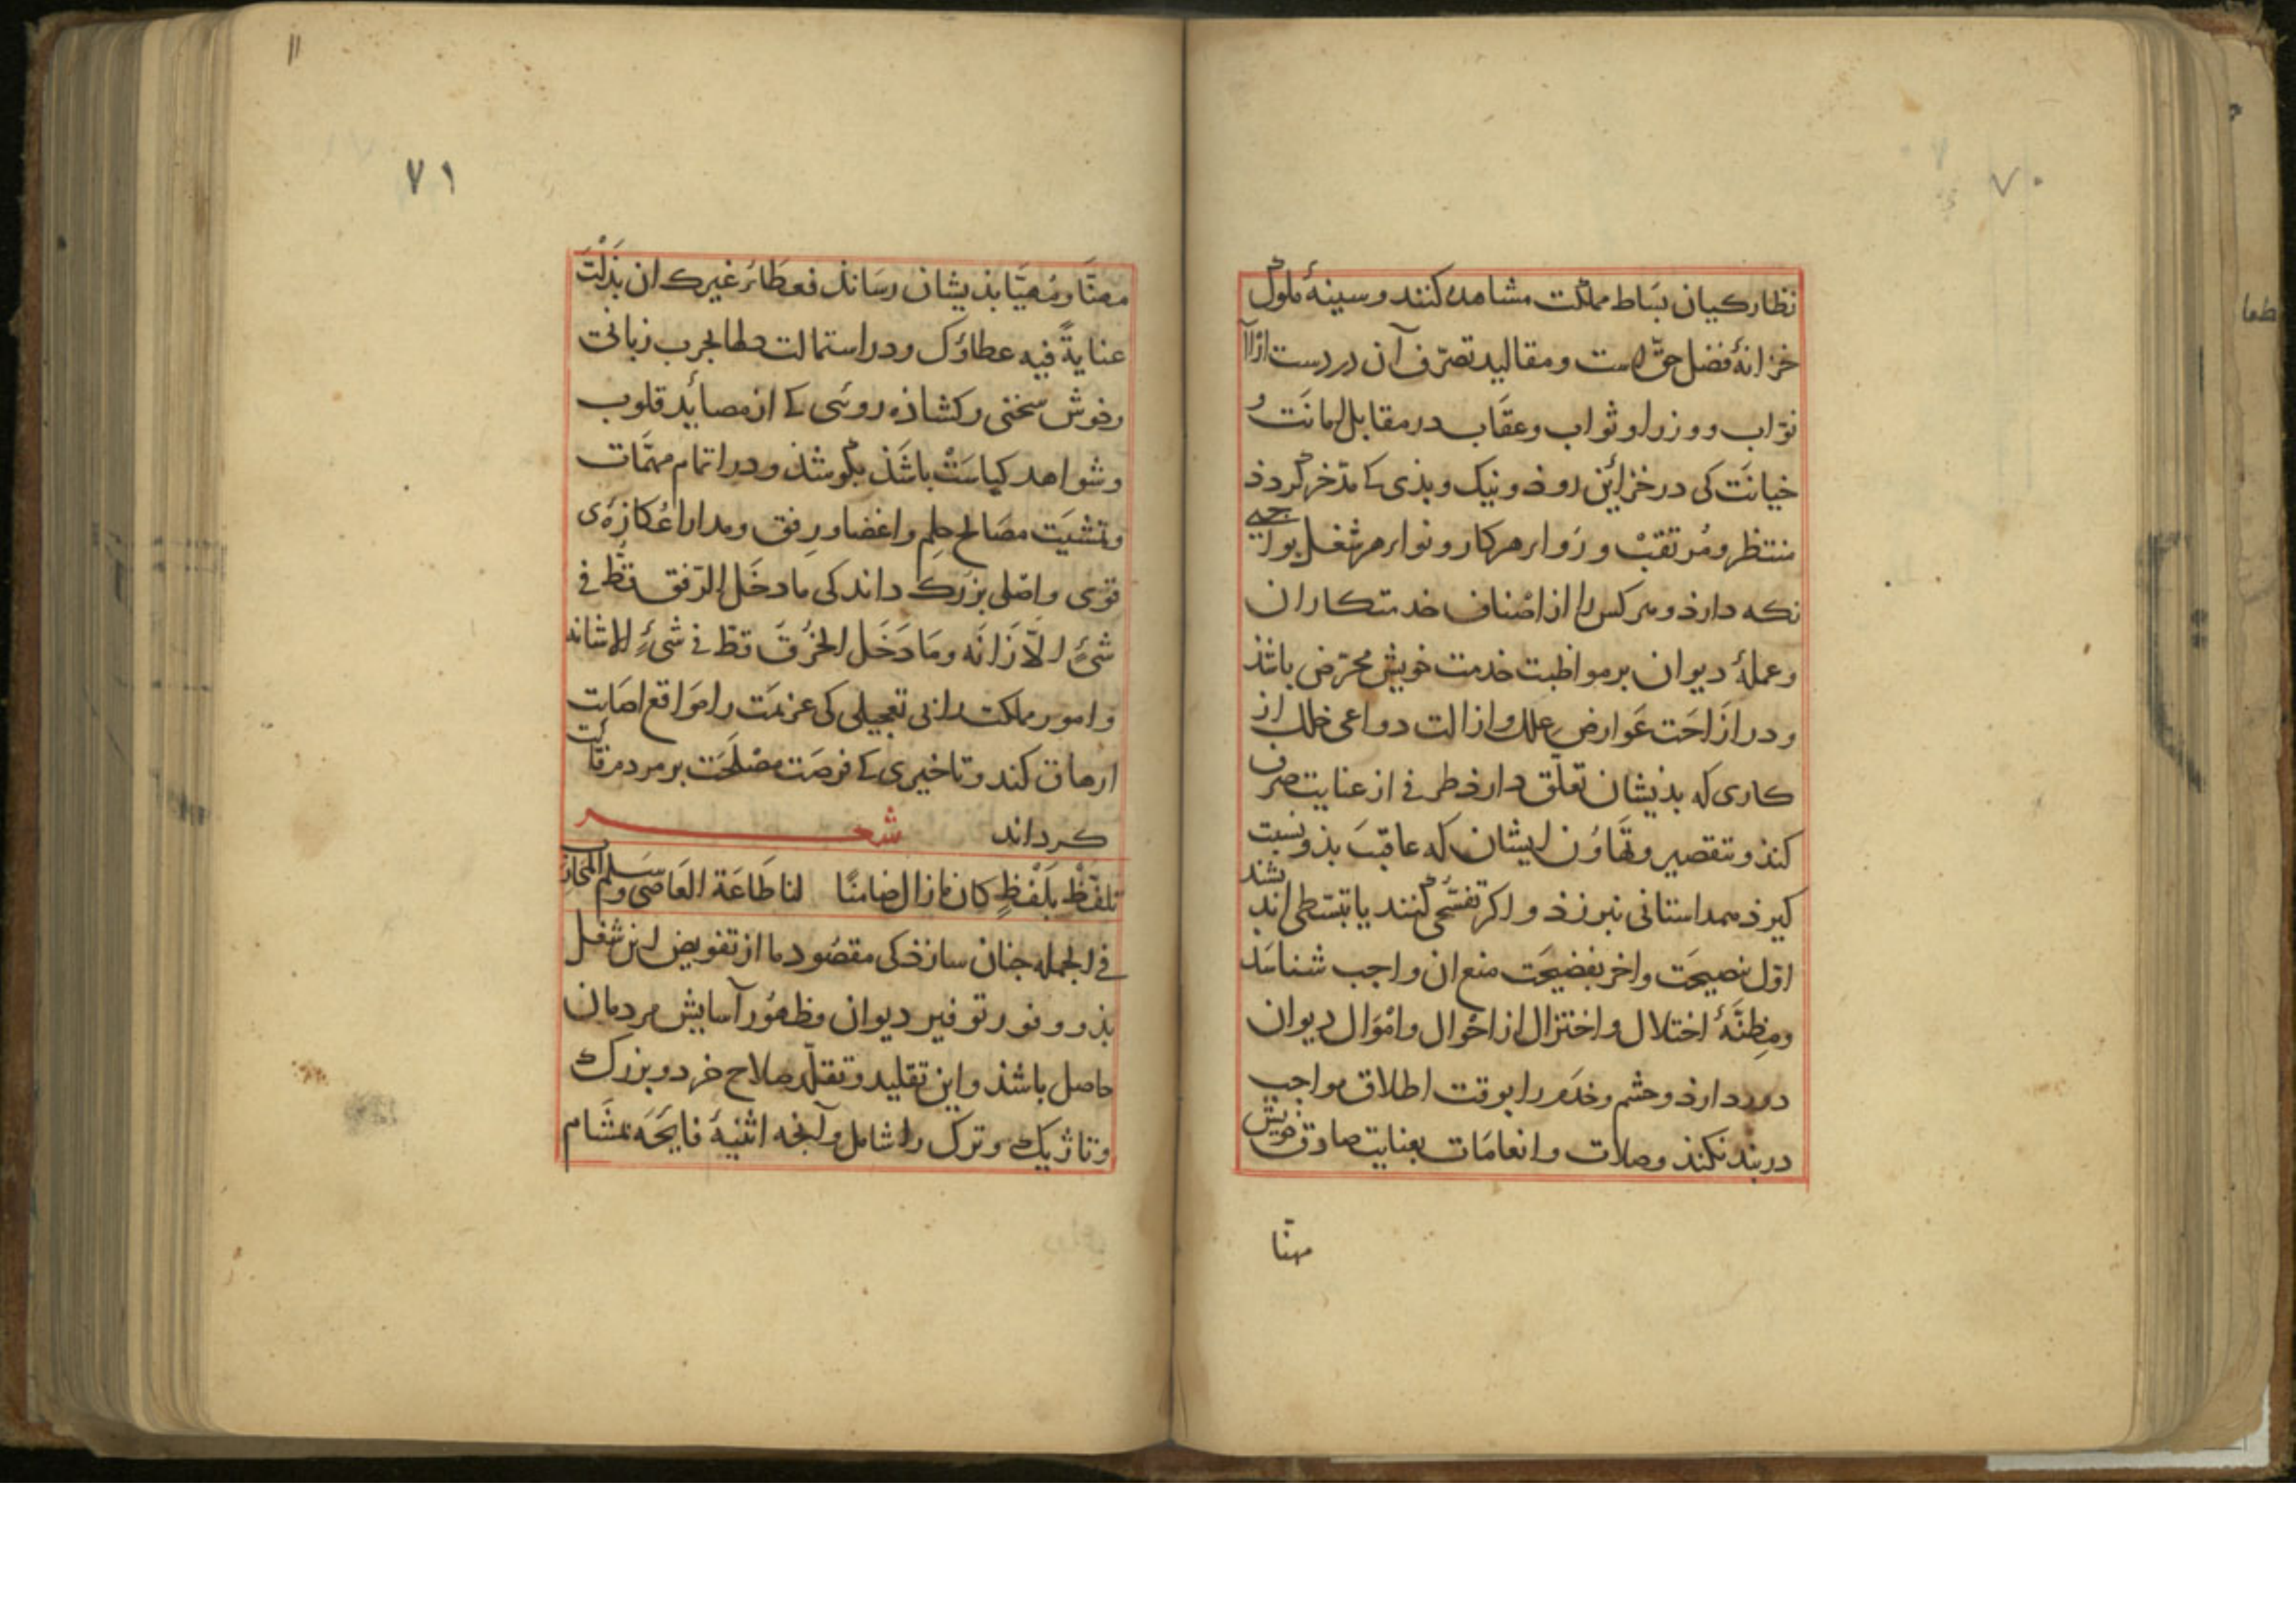 ٧٠
نظارکیان بسَاط مملکت مشاهده کنند و سینهٔ ملوک
خزانهٔ فضل حقّ است و مقالید تصرّف آن در دست
نوّاب و وزرا و ثواب و عقاب در مقابل امانَت و
خیانَت کی در خزاین روذ و نیک و بذی کا مدّخر کردذ
منتظر و مُرتقبْ و رَواء هر کار و نواء هر شغل بواجبی
نکه دارذ و هر کس را از اصْناف خدمتکاران
و عملهٔ دیوان بر مواظبت خدمت خویش محرّض باشذ
و در ازَاحَت عَوارض علل و ازالت دواعی خلل از
کاری که بذیشان تعلّق دارذ طرفی از عنایت صرف
کنذ و بتقصیر و تهَاوُن ایشان که عاقبَت بذو نسبت
کیرذ همداستانی نبرزذ و اکر تفسّحی کنند یا تبسّطی اندیشند
اوّل بنصیحَت و اخر بفضیحَت منع ان واجب شناسَد
و مِظنّهٔ اختلال و اختزال از احْوال و امْوَال دیوان
دور دارذ و حشم و خدَم را بوقت اطلاق مواجب
در بند نکنذ و صلات و انعامَات بعنایت صادق خویش
مهنّا
١١
٧١
مهنّا و مُهیّا بذیشان رسَانذ فعطَاءُ غیرک ان بذَلْتَ
عنایةً فیه عطاؤک و در استمالت دلها بچرب زبانی
و خوش سخنی و کشاذه روئی کی از مصائد قلوب
و شواهد کیاسَتْ باشَذ بکوشذ و در اتمام مهمّات
و تمشیَت مصَالح حِلم و اغضا و رِفق و مدارا عُکازهٔ
قوی و اصْلی بزرک داند کی ما دخَل الرّفق قطّ فی
شیءٍ الّا زَانَه و مَا دَخَل الخُرْقَ قطّ فی شیءٍ الا شانه
و امور مملکت را نی تعجیلی کی عزیمَت را مَواقع اصَابت
ارهاق کند و تاخیری کی فرصَت مصْلحَت بر مردم فائت
کرداند شعر
تلفّظْ بلَفْظٍ کان مازال ضامنًا لنا طَاعَة العَاصی و سلم المحارب
فی الجمله چنان سازذ کی مقصُود ما از تفویض این شغل
بذو وفور توفیر دیوان و ظهُور آسایش مردمان
حاصل باشذ و این تقلید و تقلّد صلاح خرد و بزرک
و تاژیک و ترک را شامل و آنچه اثنیهٔ فایحَه بمشَام